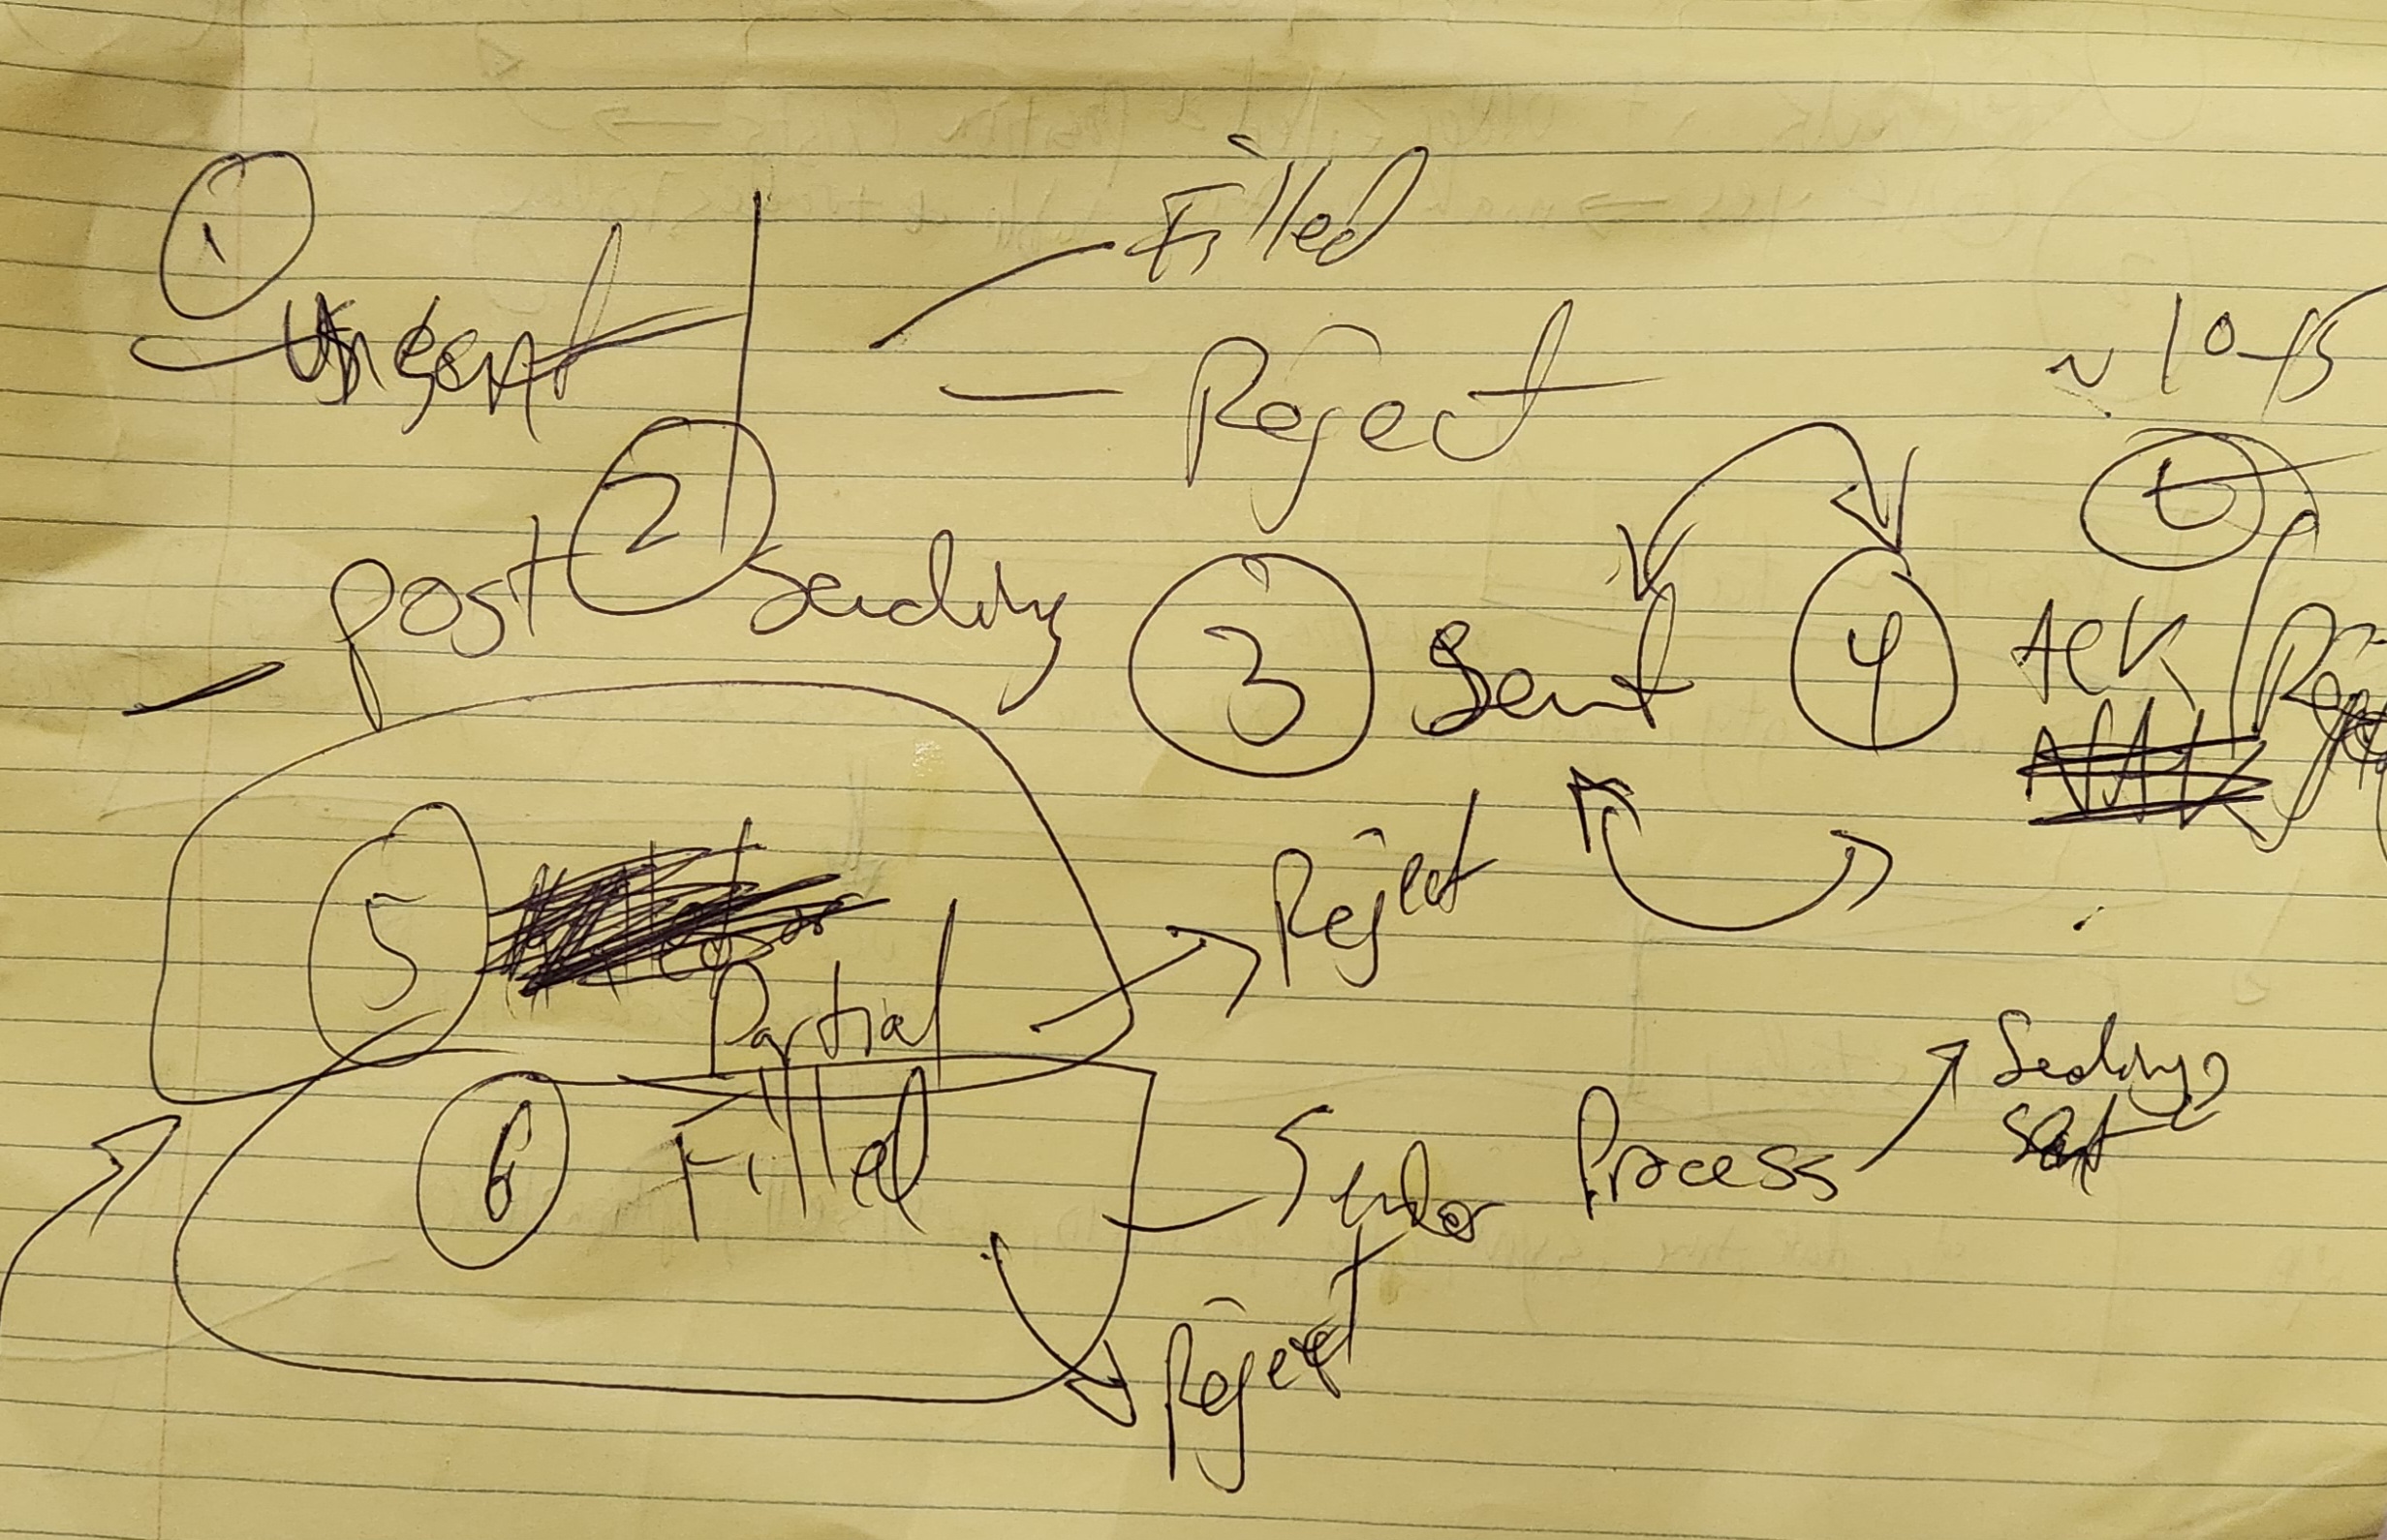 1
Unsent
Filled
Reject
2
post sending
3 Sent
4 ACK
Reject
NAK
5
Partial
Reject
6 Filled
Sender Process
Sending,
Sent
Reject